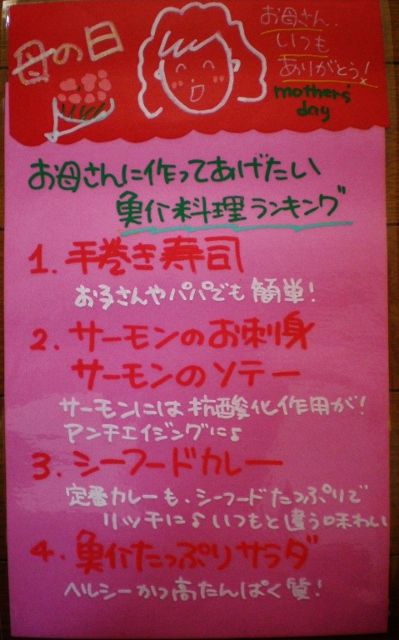 母の日
お母さん、
いつも
ありがとう!
mother's
day
お母さんに作ってあげたい
魚介料理ランキング
1. 手巻き寿司
お子さんやパパでも簡単!
2. サーモンのお刺身
サーモンのソテー
サーモンには抗酸化作用が!
アンチエイジングに♪
3. シーフードカレー
定番カレーも、シーフードたっぷりで
リッチに♪いつもと違う味わい
4. 魚介たっぷりサラダ
ヘルシーかつ高たんぱく質!